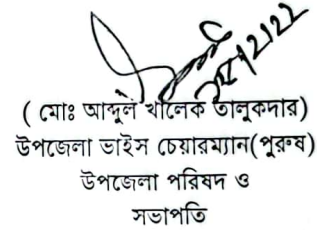 ( মোঃ আব্দুল খালেক তালুকদার)
উপজেলা ভাইস চেয়ারম্যান(পুরুষ)
উপজেলা পরিষদ ও
সভাপতি